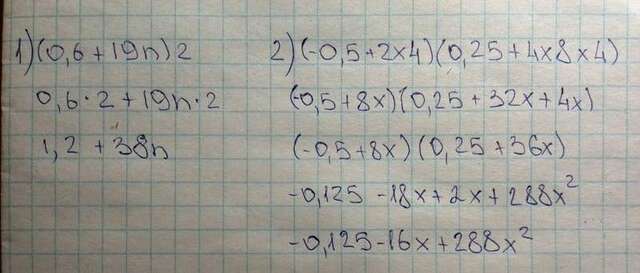 1) (0,6+19n)2
0,6·2+19n·2
1,2+38n
2) (-0,5+2x4)(0,25+4x8x4)
(-0,5+8x)(0,25+32x+4x)
(-0,5+8x)(0,25+36x)
-0,125-18x+2x+288x²
-0,125-16x+288x²